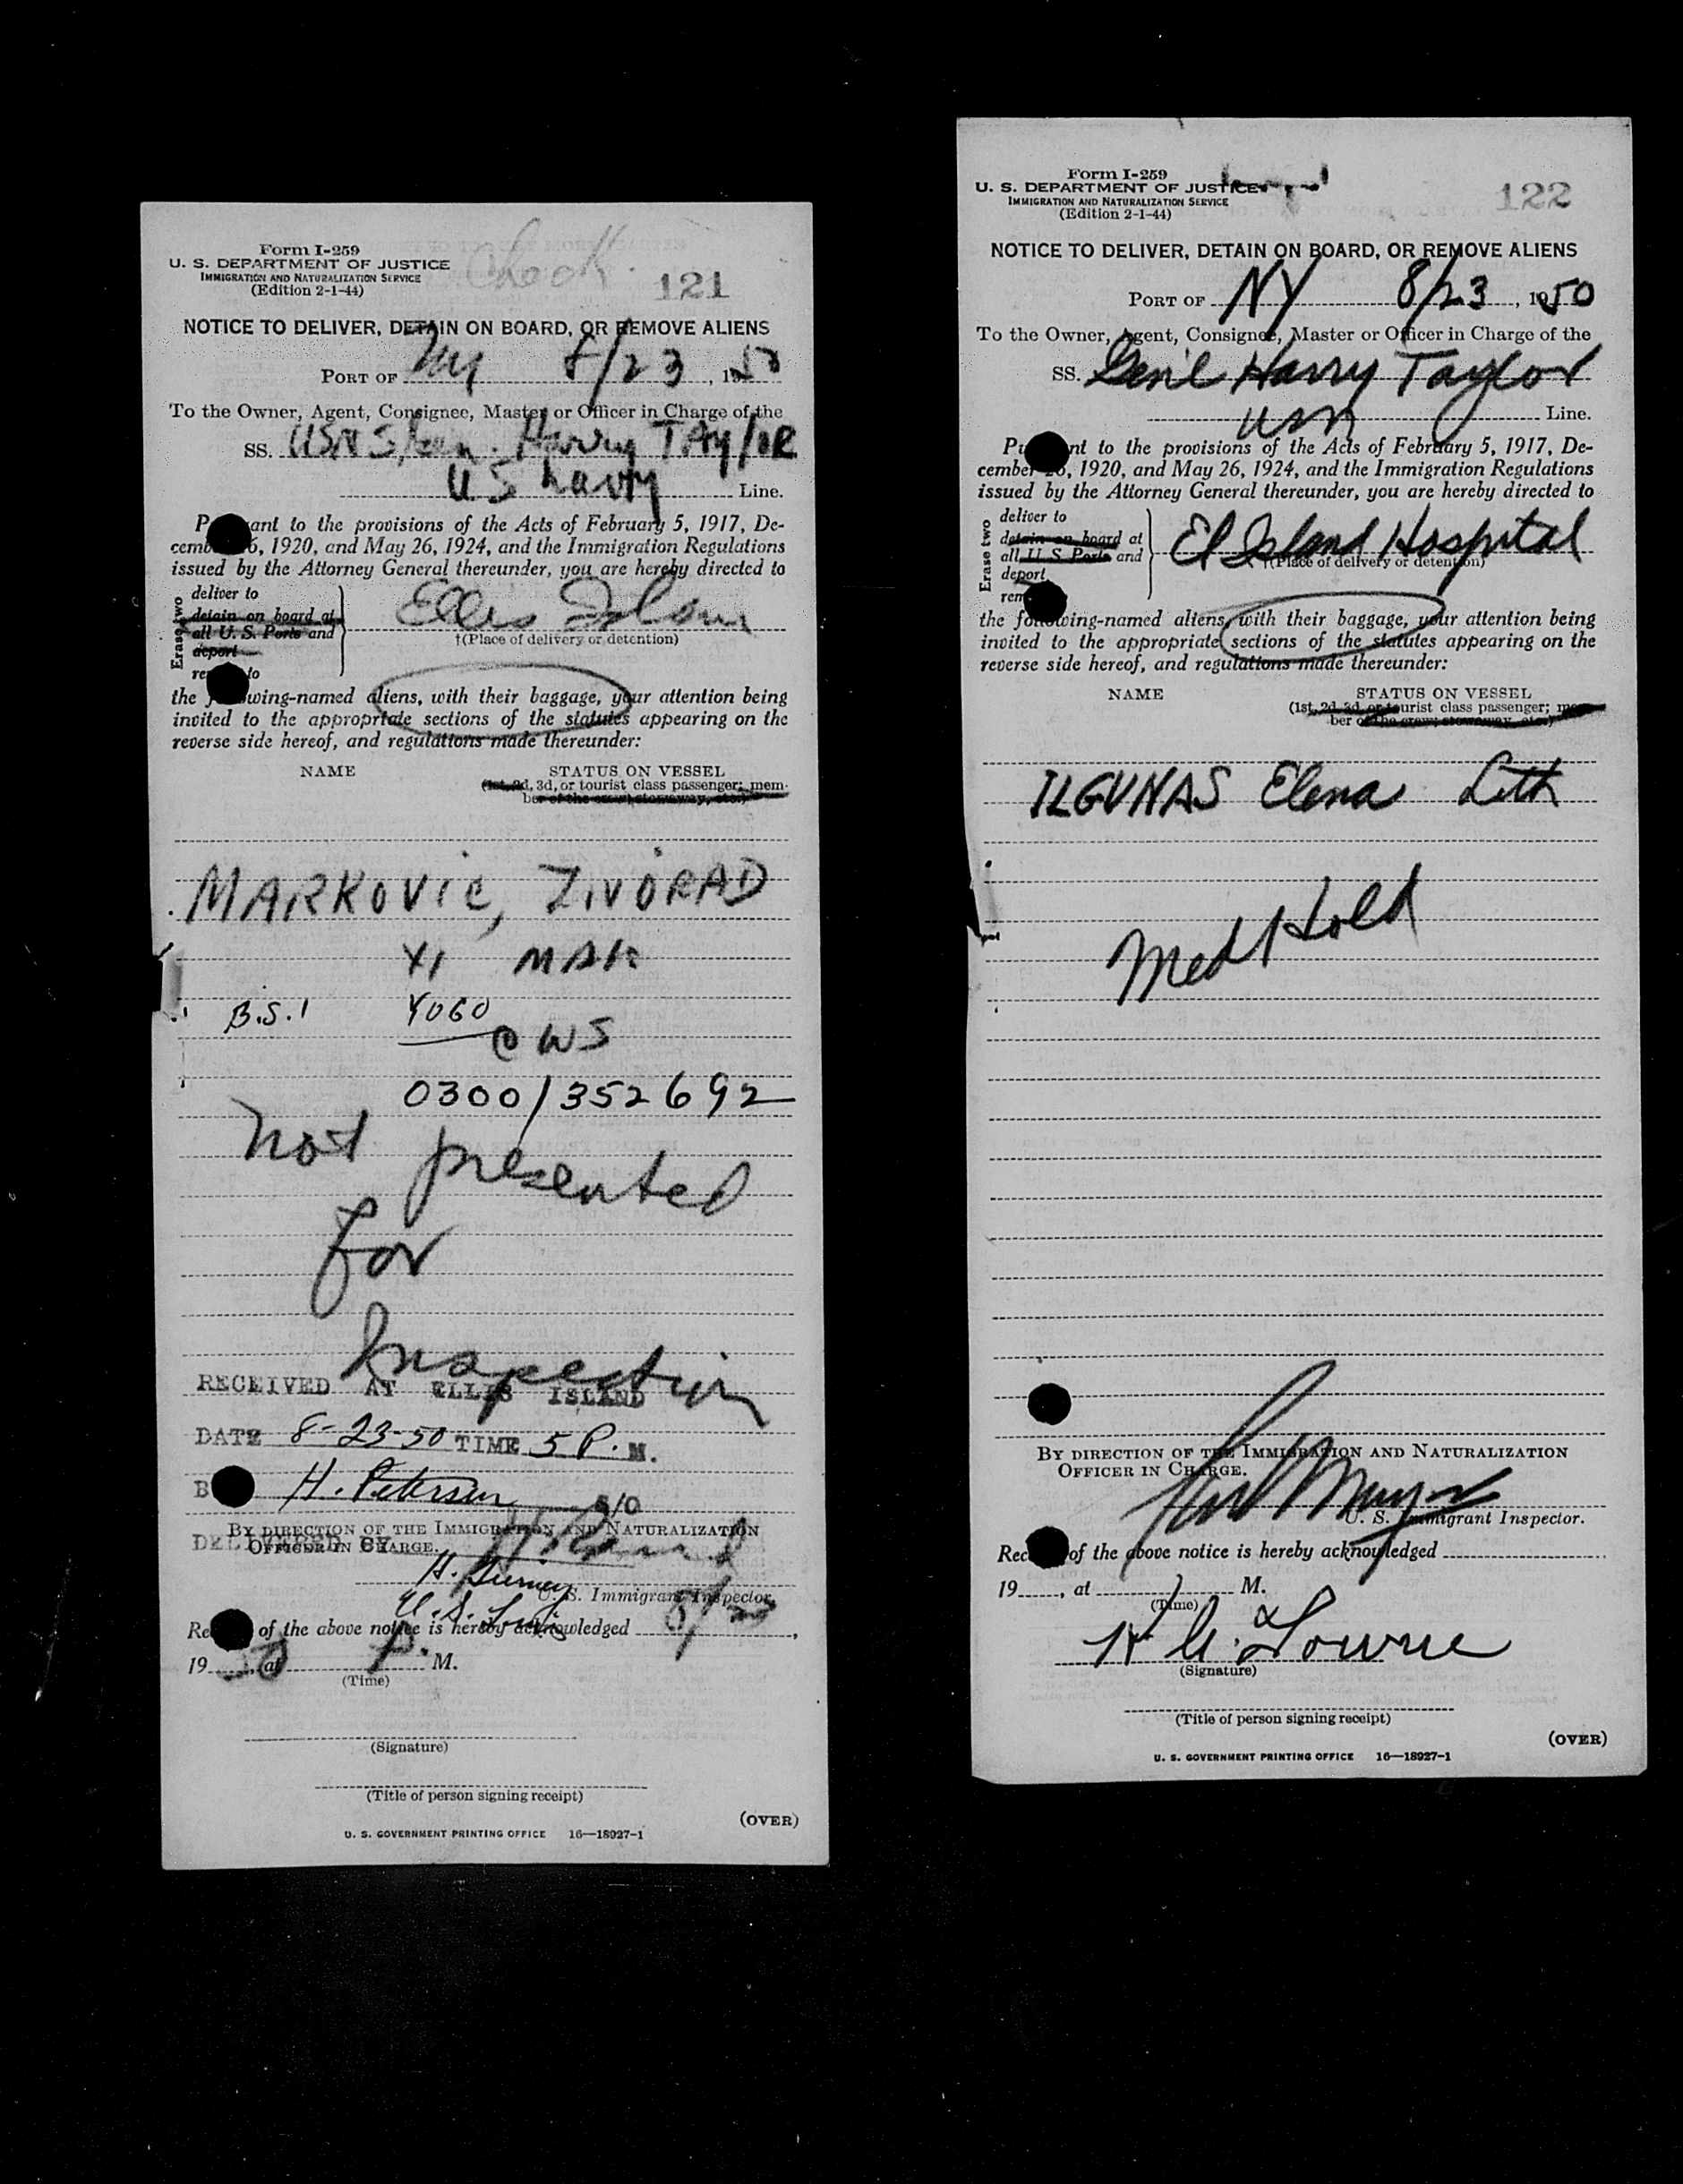 Form I-259
U. S. DEPARTMENT OF JUSTICE
IMMIGRATION AND NATURALIZATION SERVICE
(Edition 2-1-44)
Check
121
NOTICE TO DELIVER, DETAIN ON BOARD, OR REMOVE ALIENS
PORT OF NY 8/23, 1950
To the Owner, Agent, Consignee, Master or Officer in Charge of the
SS. Harry TAylOR
US Navy Line.
ant to the provisions of the Acts of February 5, 1917, De-
cemb 6, 1920, and May 26, 1924, and the Immigration Regulations
issued by the Attorney General thereunder, you are hereby directed to
Erase two
deliver to
detain on board at
all U. S. Ports and
deport
re to
Ellis Island
†(Place of delivery or detention)
the wing-named aliens, with their baggage, your attention being
invited to the appropriate sections of the statutes appearing on the
reverse side hereof, and regulations made thereunder:
NAME STATUS ON VESSEL
(1st, 2d, 3d, or tourist class passenger; mem-
ber of the crew; stowaway, etc.)
MARKOVIC, ZIVORAD
B.S.I
WS
0300/352692
not presented
for
Inspection
RECEIVED AT ELLIS ISLAND
DATE 8-23-50 TIME 5 P. M.
B H. Petersen S/O
BY DIRECTION OF THE IMMIGRATION AND NATURALIZATION
OFFICER IN CHARGE.
DELIVERED BY
U. S. Immigrant Inspector.
Re of the above notice is hereby acknowledged
19 50, at P. M.
(Time)
(Signature)
(Title of person signing receipt)
(OVER)
U. S. GOVERNMENT PRINTING OFFICE 16—18927-1
Form I-259
U. S. DEPARTMENT OF JUSTICE
IMMIGRATION AND NATURALIZATION SERVICE
(Edition 2-1-44)
122
NOTICE TO DELIVER, DETAIN ON BOARD, OR REMOVE ALIENS
PORT OF NY 8/23, 1950
To the Owner, Agent, Consignee, Master or Officer in Charge of the
SS. Genl Harry Taylor
USN Line.
Pu nt to the provisions of the Acts of February 5, 1917, De-
cember 26, 1920, and May 26, 1924, and the Immigration Regulations
issued by the Attorney General thereunder, you are hereby directed to
Erase two
deliver to
detain on board at
all U. S. Ports and
deport
rem
El Island Hospital
†(Place of delivery or detention)
the following-named aliens, with their baggage, your attention being
invited to the appropriate sections of the statutes appearing on the
reverse side hereof, and regulations made thereunder:
NAME STATUS ON VESSEL
(1st, 2d, 3d, or tourist class passenger; mem-
ber of the crew; stowaway, etc.)
ILGUNAS Elena Lith
Med Hold
BY DIRECTION OF THE IMMIGRATION AND NATURALIZATION
OFFICER IN CHARGE.
U. S. Immigrant Inspector.
Rec of the above notice is hereby acknowledged
19 , at M.
(Time)
(Signature)
(Title of person signing receipt)
(OVER)
U. S. GOVERNMENT PRINTING OFFICE 16—18927-1